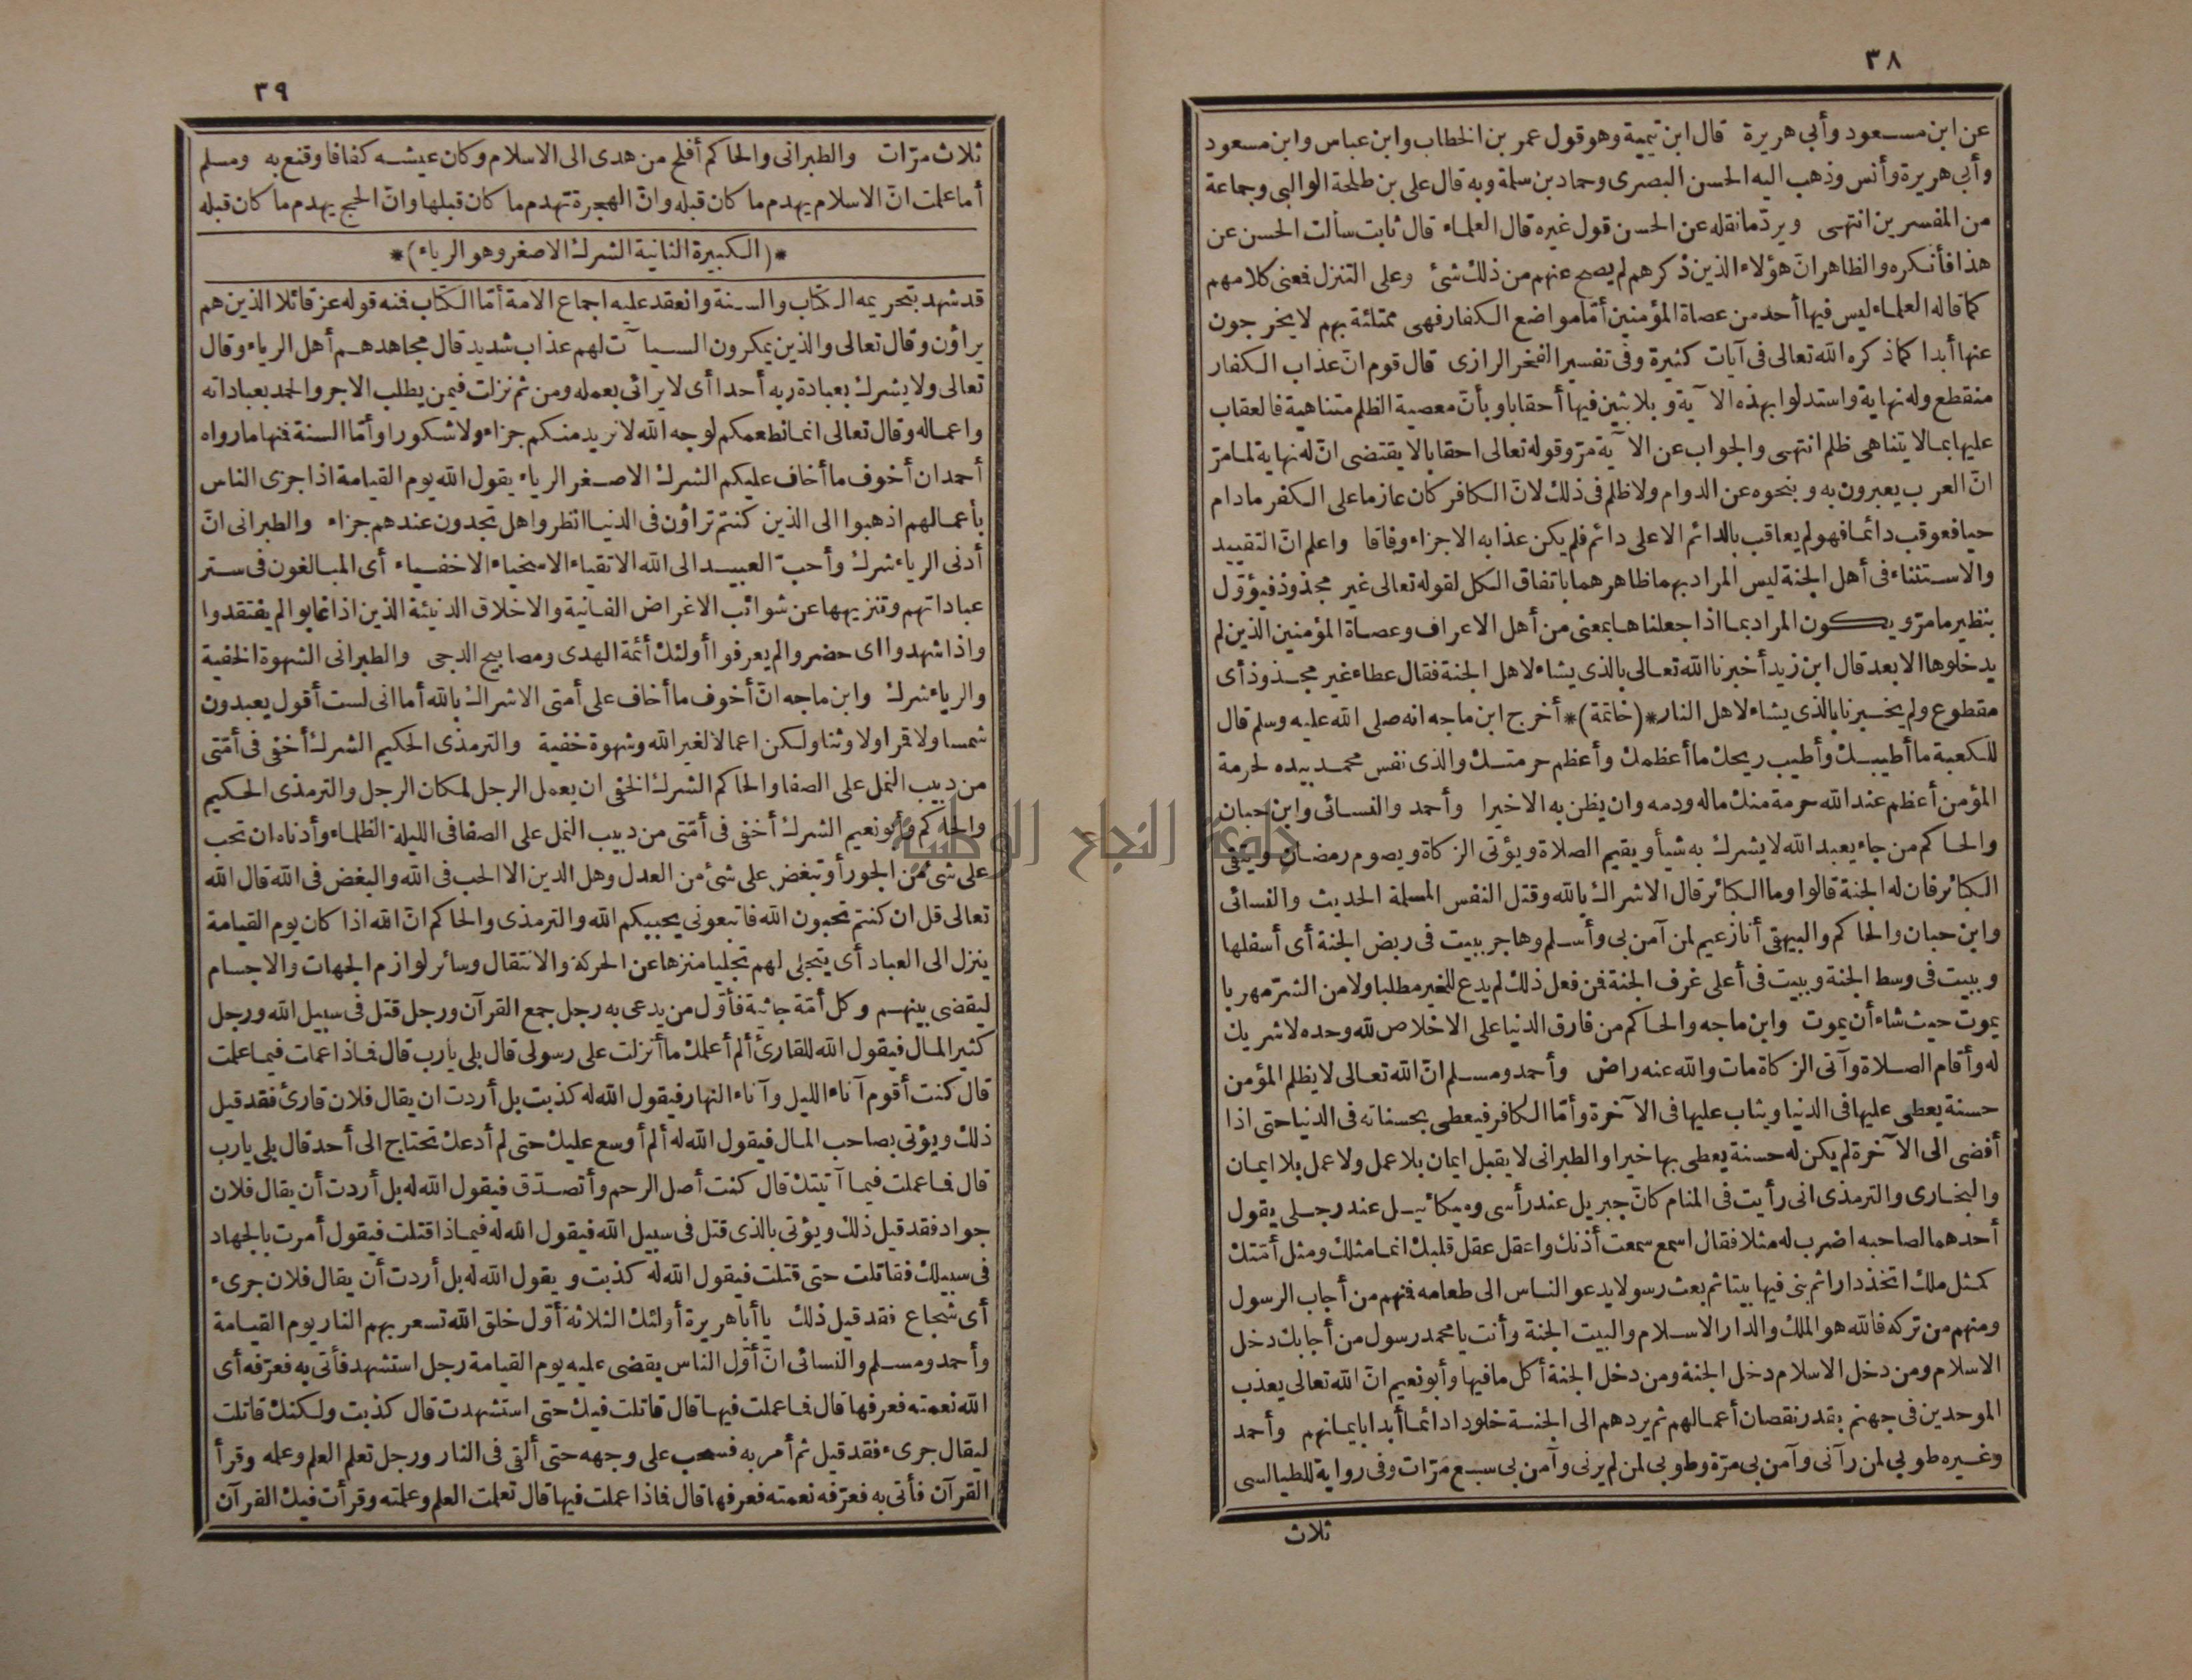 ٣٨
عن ابن مسعود وأبي هريرة قال ابن تيمية وهو قول عمر بن الخطاب وابن عباس وابن مسعود
وأبي هريرة وأنس وذهب اليه الحسن البصرى وحماد بن سلمة وبه قال على بن طلحة الوالبي وجماعة
من المفسرين انتهى ويردّ مانقله عن الحسن قول غيره قال العلماء قال ثابت سألت الحسن عن
هذا فأنكره والظاهر انّ هؤلاء الذين ذكرهم لم يصح عنهم من ذلك شئ وعلى التنزل فمعنى كلامهم
كما قاله العلماء ليس فيها أحد من عصاة المؤمنين أمّا مواضع الكفار فهى ممتلئة بهم لا يخرجون
عنها أبدا كما ذكره الله تعالى فى آيات كثيرة وفى تفسير الفخر الرازى قال قوم انّ عذاب الكفار
منقطع وله نهاية واستدلوا بهذه الآية وبلابثين فيها أحقابا وبأنّ معصية الظلم متناهية فالعقاب
عليها بما لا يتناهى ظلم انتهى والجواب عن الآية مرّ وقوله تعالى احقابا لا يقتضى انّ له نهاية لما مرّ
انّ العرب يعبرون به وبنحوه عن الدوام ولا ظلم فى ذلك لانّ الكافر كان عازما على الكفر مادام
حيا فعوقب دائما فهو لم يعاقب بالدائم الا على دائم فلم يكن عذابه الا جزاء وفاقا واعلم انّ التقييد
والاستثناء فى أهل الجنة ليس المراد بهما ظاهرهما باتفاق الكل لقوله تعالى غير مجذوذ فيؤوّل
بنظير مامرّ ويكون المراد بما اذا جعلناها بمعنى من أهل الاعراف وعصاة المؤمنين الذين لم
يدخلوها الا بعد قال ابن زيد أخبرنا الله تعالى بالذى يشاء لاهل الجنة فقال عطاء غير مجذوذ أى
مقطوع ولم يخبرنا بالذى يشاء لاهل النار *(خاتمة)* أخرج ابن ماجه انه صلى الله عليه وسلم قال
للكعبة ما أطيبك وأطيب ريحك ما أعظمك وأعظم حرمتك والذى نفس محمد بيده لحرمة
المؤمن أعظم عند الله حرمة منك ماله ودمه وان يظن به الاخيرا وأحمد والنسائى وابن حبان
والحاكم من جاء يعبد الله لا يشرك به شيأ ويقيم الصلاة ويؤتى الزكاة ويصوم رمضان ويتقى
الكبائر فان له الجنة قالوا وما الكبائر قال الاشراك بالله وقتل النفس المسلمة الحديث والنسائى
وابن حبان والحاكم والبيهقى أنا زعيم لمن آمن بى وأسلم وهاجر ببيت فى ربض الجنة أى أسفلها
وببيت فى وسط الجنة وببيت فى أعلى غرف الجنة فمن فعل ذلك لم يدع للخير مطلبا ولا من الشرّ مهربا
يموت حيث شاء أن يموت وابن ماجه والحاكم من فارق الدنيا على الاخلاص لله وحده لا شريك
له وأقام الصلاة وآتى الزكاة مات والله عنه راض وأحمد ومسلم انّ الله تعالى لا يظلم المؤمن
حسنة يعطى عليها فى الدنيا ويثاب عليها فى الآخرة وأمّا الكافر فيعطى بحسناته فى الدنيا حتى اذا
أفضى الى الآخرة لم يكن له حسنة يعطى بها خيرا والطبرانى لا يقبل ايمان بلا عمل ولا عمل بلا ايمان
والبخارى والترمذى انى رأيت فى المنام كانّ جبريل عند رأسى وميكائيل عند رجلى يقول
أحدهما لصاحبه اضرب له مثلا فقال اسمع سمعت أذنك واعقل عقل قلبك انما مثلك ومثل أمّتك
كمثل ملك اتخذ دارا ثم بنى فيها بيتا ثم بعث رسولا يدعو الناس الى طعامه فمنهم من أجاب الرسول
ومنهم من تركه فالله هو الملك والدار الاسلام والبيت الجنة وأنت يا محمد رسول من أجابك دخل
الاسلام ومن دخل الاسلام دخل الجنة ومن دخل الجنة أكل ما فيها وأبو نعيم انّ الله تعالى يعذب
الموحدين فى جهنم بقدر نقصان أعمالهم ثم يردهم الى الجنة خلودا دائما أبدا بايمانهم وأحمد
وغيره طوبى لمن رآنى وآمن بى مرّة وطوبى لمن لم يرنى وآمن بى سبع مرّات وفى رواية للطيالسى
ثلاث
٣٩
ثلاث مرّات والطبرانى والحاكم أفلح من هدى الى الاسلام وكان عيشه كفافا وقنع به ومسلم
أما علمت انّ الاسلام يهدم ما كان قبله وانّ الهجرة تهدم ما كان قبلها وانّ الحج يهدم ما كان قبله
*(الكبيرة الثانية الشرك الاصغر وهو الرياء)*
قد شهد بتحريمه الكتاب والسنة وانعقد عليه اجماع الامة أمّا الكتاب فمنه قوله عز قائلا الذين هم
يراؤن وقال تعالى والذين يمكرون السيآت لهم عذاب شديد قال مجاهد هم أهل الرياء وقال
تعالى ولا يشرك بعبادة ربه أحدا أى لا يرائى بعمله ومن ثم نزلت فيمن يطلب الاجر والحمد بعباداته
واعماله وقال تعالى انما نطعمكم لوجه الله لا نريد منكم جزاء ولا شكورا وأمّا السنة فمنها ما رواه
أحمد ان أخوف ما أخاف عليكم الشرك الاصغر الرياء يقول الله يوم القيامة اذا جزى الناس
بأعمالهم اذهبوا الى الذين كنتم تراؤن فى الدنيا انظروا هل تجدون عندهم جزاء والطبرانى انّ
أدنى الرياء شرك وأحبّ العبيد الى الله الاتقياء الاسخياء الاخفياء أى المبالغون فى ستر
عباداتهم وتنزيهها عن شوائب الاغراض الفانية والاخلاق الدنيئة الذين اذا غابوا لم يفتقدوا
واذا شهدوا اى حضروا لم يعرفوا أولئك أئمة الهدى ومصابيح الدجى والطبرانى الشهوة الخفية
والرياء شرك وابن ماجه انّ أخوف ما أخاف على أمتى الاشراك بالله أما انى لست أقول يعبدون
شمسا ولا قمرا ولا وثنا ولكن اعمالا لغير الله وشهوة خفية والترمذى الحكيم الشرك أخفى فى أمّتى
من دبيب النمل على الصفا والحاكم الشرك الخفى ان يعمل الرجل لمكان الرجل والترمذى الحكيم
والحاكم وأبو نعيم الشرك أخفى فى أمّتى من دبيب النمل على الصفا فى الليلة الظلماء وأدناه ان تحب
على شئ من الجور أو تبغض على شئ من العدل وهل الدين الا الحب فى الله والبغض فى الله قال الله
تعالى قل ان كنتم تحبون الله فاتبعونى يحببكم الله والترمذى والحاكم انّ الله اذا كان يوم القيامة
ينزل الى العباد أى يتجلى لهم تجليا منزها عن الحركة والانتقال وسائر لوازم الجهات والاجسام
ليقضى بينهم وكل أمّة جاثية فأوّل من يدعى به رجل جمع القرآن ورجل قتل فى سبيل الله ورجل
كثير المال فيقول الله للقارئ ألم أعلمك ما أنزلت على رسولى قال بلى يا رب قال فماذا عملت فيما علمت
قال كنت أقوم آناء الليل وآناء النهار فيقول الله له كذبت بل أردت ان يقال فلان قارئ فقد قيل
ذلك ويؤتى بصاحب المال فيقول الله له ألم أوسع عليك حتى لم أدعك تحتاج الى أحد قال بلى يا رب
قال فما عملت فيما آتيتك قال كنت أصل الرحم وأتصدّق فيقول الله له بل أردت أن يقال فلان
جواد فقد قيل ذلك ويؤتى بالذى قتل فى سبيل الله فيقول الله له فيماذا قتلت فيقول أمرت بالجهاد
فى سبيلك فقاتلت حتى قتلت فيقول الله له كذبت ويقول الله له بل أردت أن يقال فلان جرىء
أى شجاع فقد قيل ذلك يا أبا هريرة أولئك الثلاثة أوّل خلق الله تسعر بهم النار يوم القيامة
وأحمد ومسلم والنسائى انّ أوّل الناس يقضى عليه يوم القيامة رجل استشهد فأتى به فعرّفه أى
الله نعمته فعرفها قال فما عملت فيها قال قاتلت فيك حتى استشهدت قال كذبت ولكنك قاتلت
ليقال جرىء فقد قيل ثم أمر به فسحب على وجهه حتى ألقى فى النار ورجل تعلم العلم وعلمه وقرأ
القرآن فأتى به فعرّفه نعمته فعرفها قال فماذا عملت فيها قال تعلمت العلم وعلمته وقرأت فيك القرآن
جامعة النجاح الوطنية